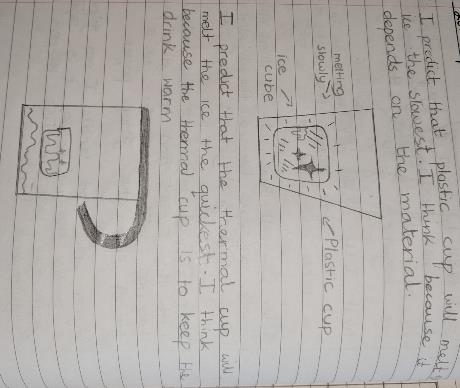 I predict that plastic cup will melt
ice the slowest. I think because it
depends on the material.
melting
slowly
ice
cube
Plastic cup
I predict that the thermal cup will
melt the ice the quickest. I think
because the thermal cup is to keep the
drink warm